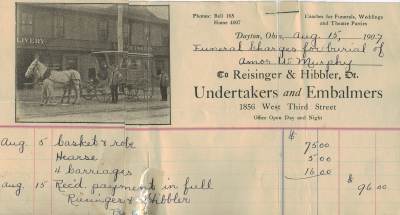 LIVERY
Phones: Bell 165
Home 4007
Coaches for Funerals, Weddings
and Theatre Parties
Dayton, Ohio, Aug 15, 1907
Funeral Charges for burial of
Amos W Murphy
To Reisinger & Hibbler, Dr.
Undertakers and Embalmers
1856 West Third Street
Office Open Day and Night
Aug 5 basket & robe $ 75 00
Hearse 5 00
4 carriages 16 00
Aug 15 Rec'd payment in full $ 96 00
Reisinger & Hibbler